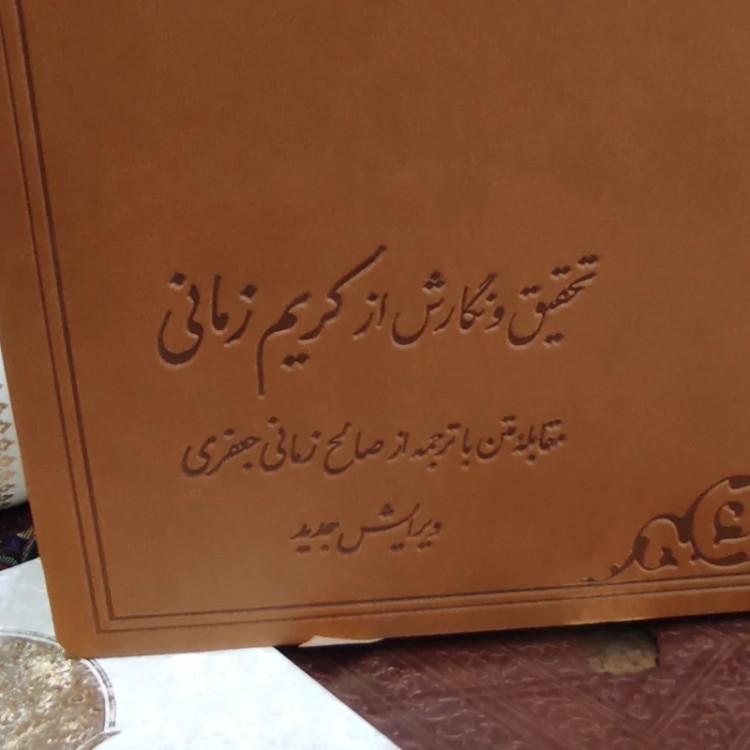 تحقیق و نگارش از کریم زمانی
مقابلهٔ متن با ترجمه از صالح زمانی جعفری
ویرایش جدید